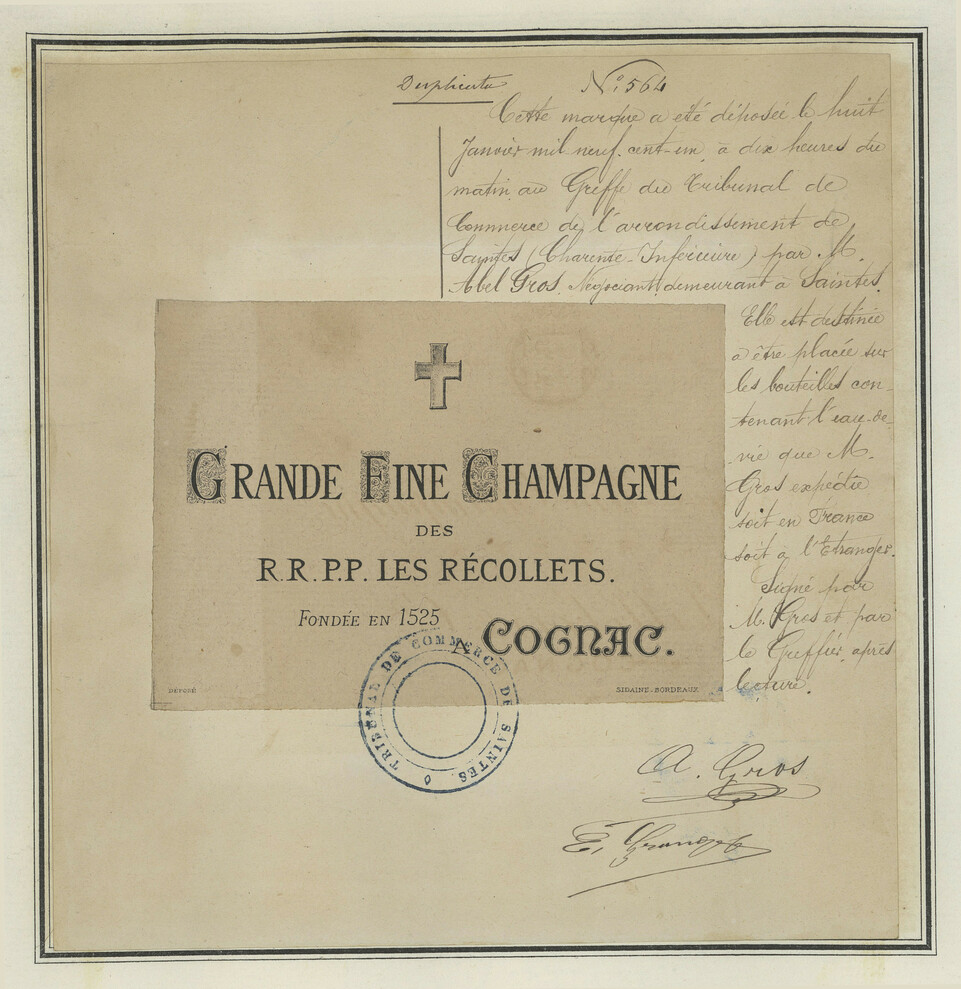 Duplicata
N° 564
Cette marque a été déposée le huit
Janvier mil neuf cent-un, à dix heures du
matin au Greffe du Tribunal de
Commerce de l'arrondissement de
Saintes (Charente-Inférieure) par M.
Abel Gros, Négociant, demeurant à Saintes.
Elle est destinée
à être placée sur
les bouteilles con-
tenant l'eau-de-
vie que M.
Gros expédie
soit en France
soit à l'Etranger.
Signé par
M. Gros et par
le Greffier, après
lecture.
GRANDE FINE CHAMPAGNE
DES
R.R.P.P. LES RÉCOLLETS.
FONDÉE EN 1525
A COGNAC.
DÉPOSÉ
SIDAINE-BORDEAUX
TRIBUNAL DE COMMERCE DE SAINTES
A. Gros